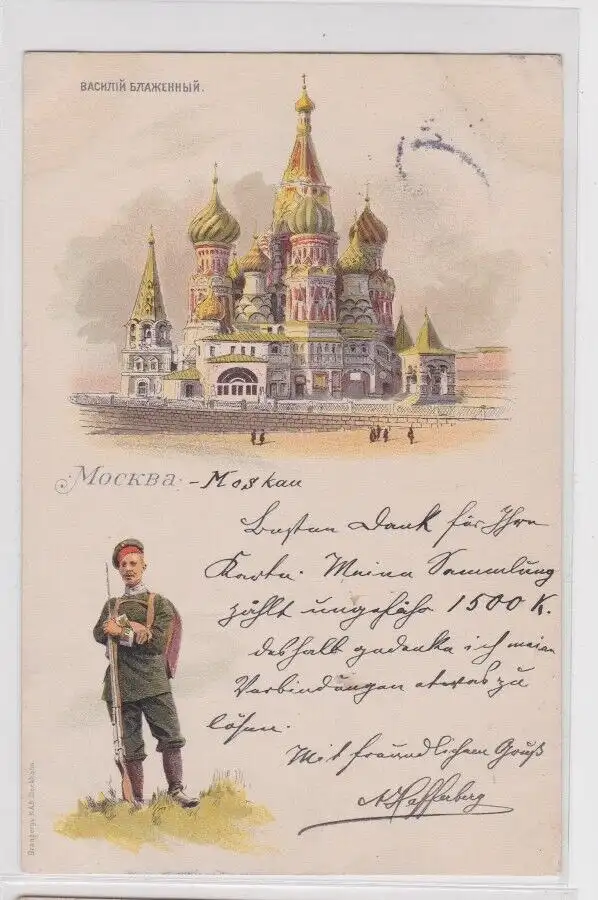 ВАСИЛІЙ БЛАЖЕННЫЙ.
Москва - Moskau
Besten Dank für Ihre
Karte. Meine Sammlung
zählt ungefähr 1500 K.
deshalb gedenke ich meine
Verbindungen etwas zu
lösen.
Mit freundlichem Gruß
A. Hafferberg
Granbergs K.A.B. Stockholm.